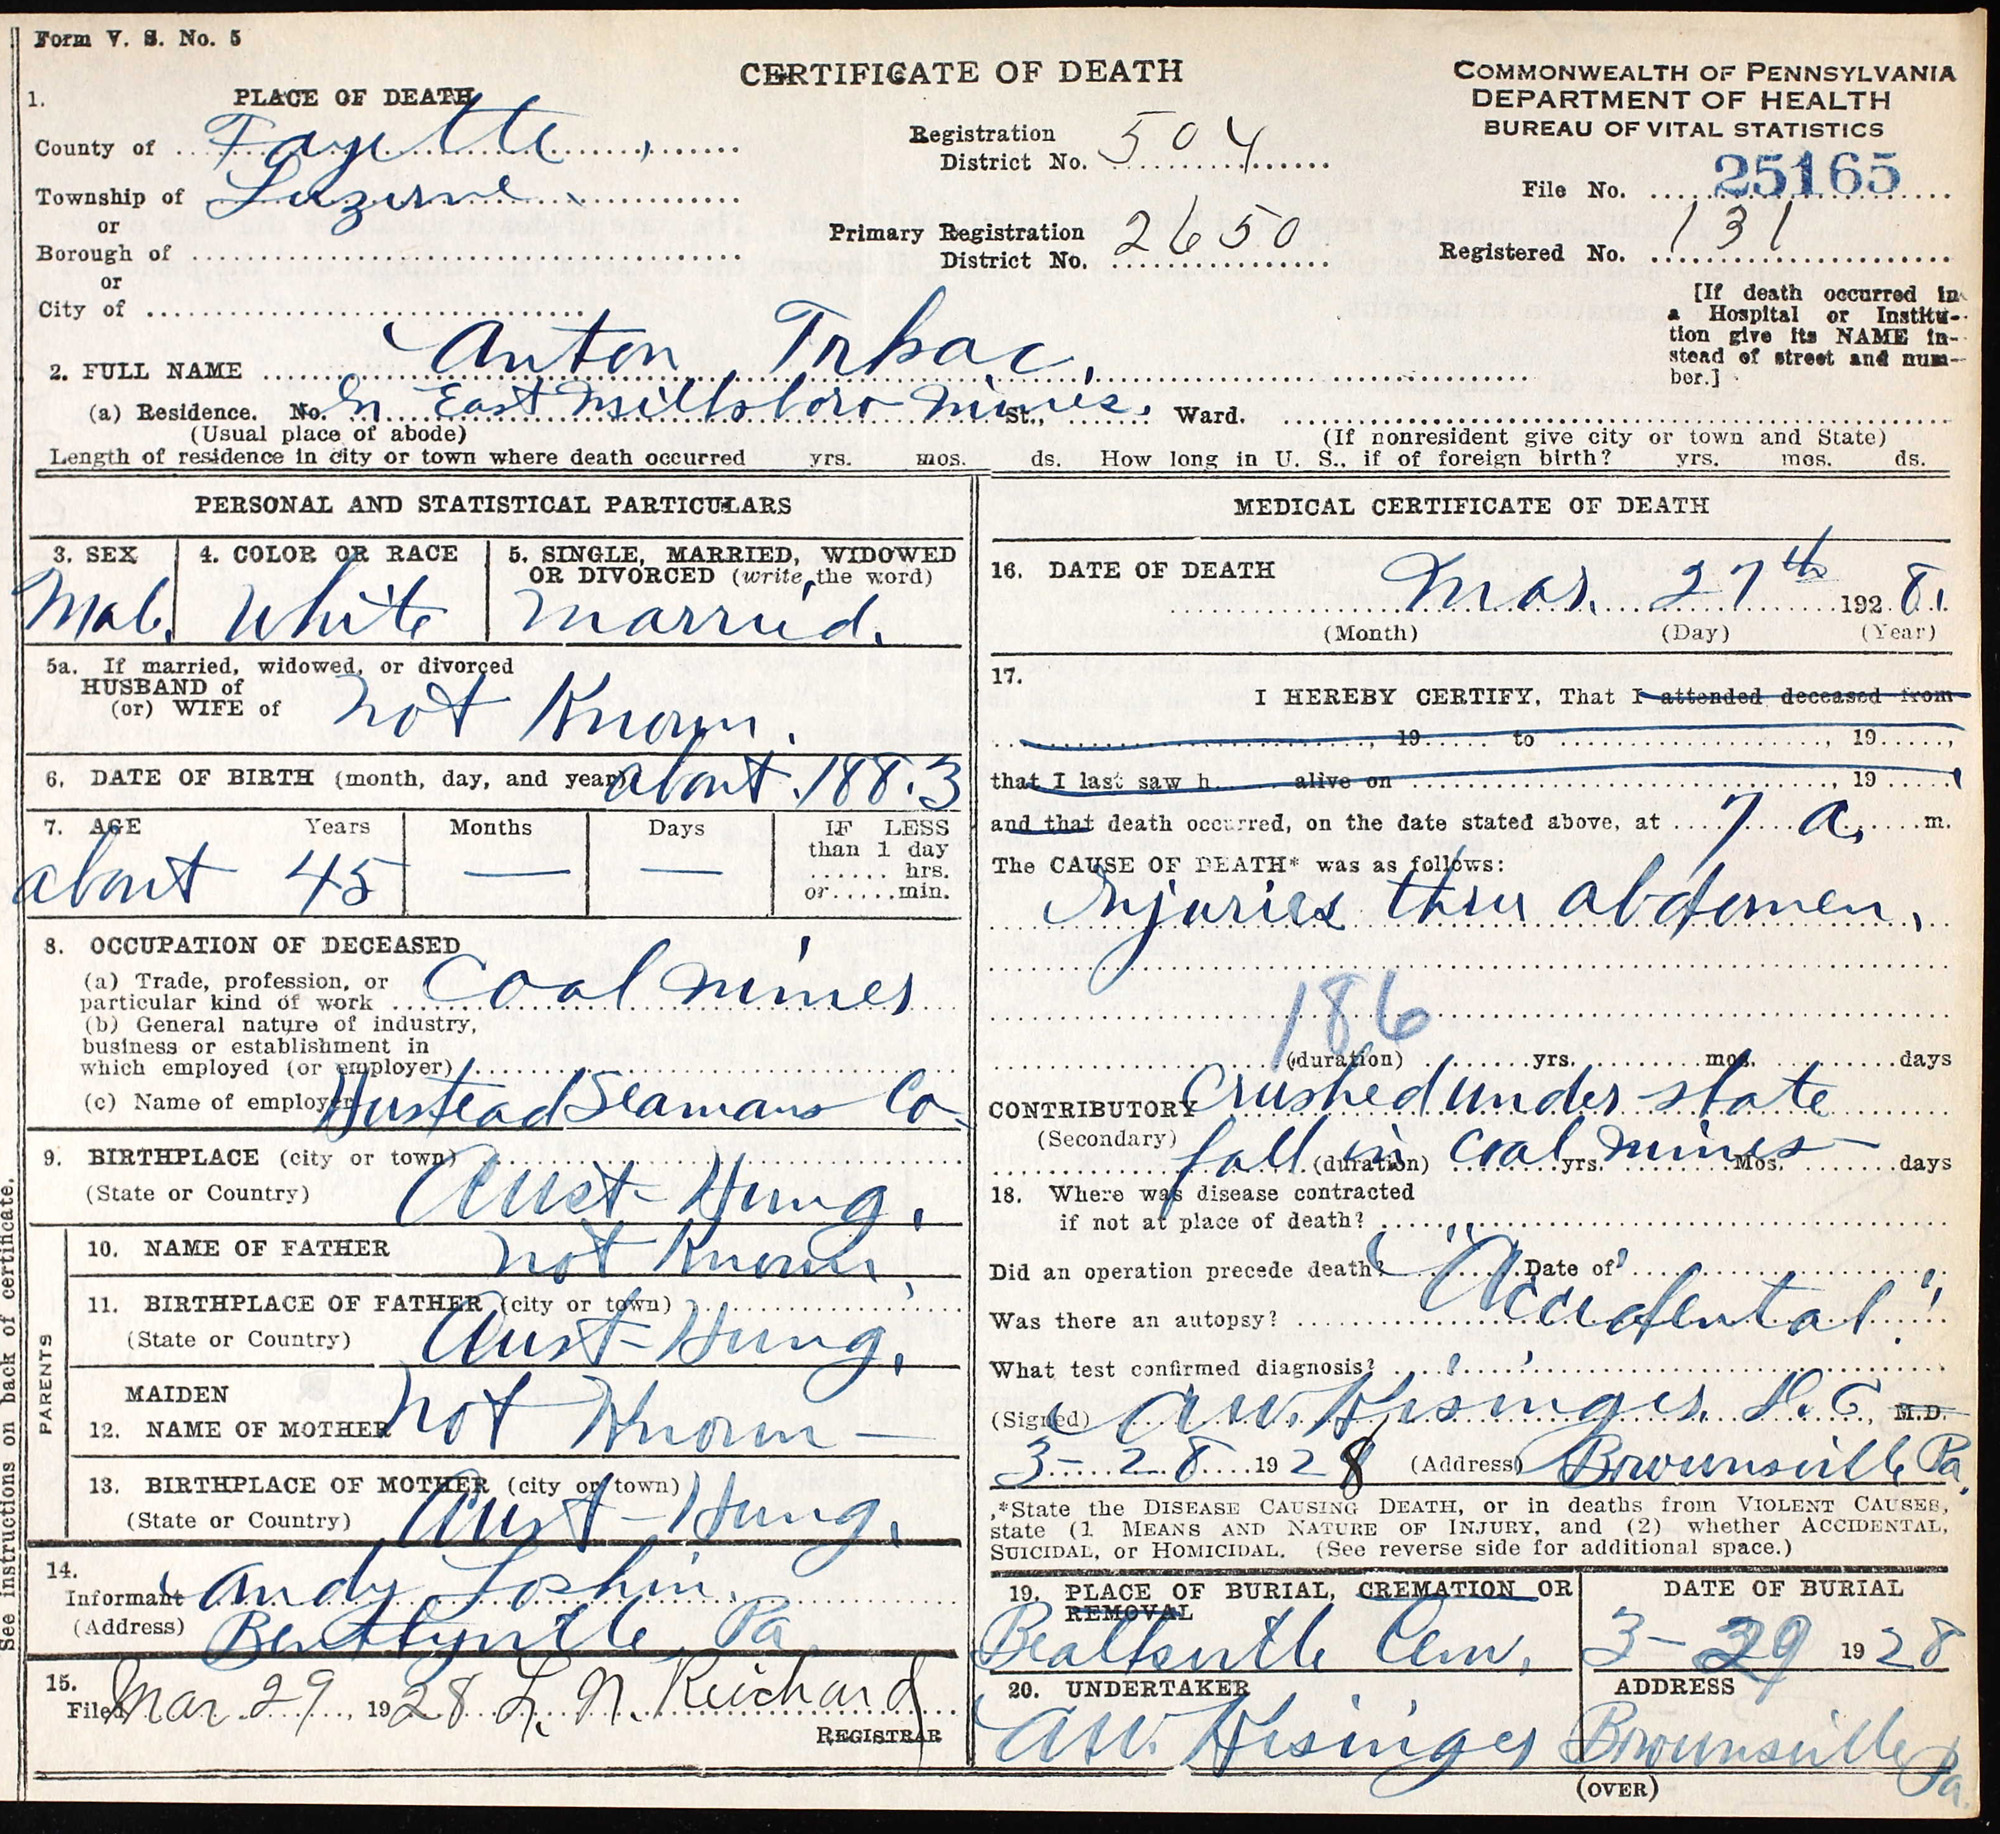 Form V. S. No. 5
CERTIFICATE OF DEATH
COMMONWEALTH OF PENNSYLVANIA
DEPARTMENT OF HEALTH
BUREAU OF VITAL STATISTICS
1. PLACE OF DEATH
County of Fayette,
Township of Luzerne
or
Borough of
or
City of
Registration District No. 504
Primary Registration District No. 2650
File No. 25165
Registered No. 131
[If death occurred in
a Hospital or Institu-
tion give its NAME in-
stead of street and num-
ber.]
2. FULL NAME Anton Trbac,
(a) Residence. No. In East Millsboro Mines. St., Ward.
(Usual place of abode) (If nonresident give city or town and State)
Length of residence in city or town where death occurred yrs. mos. ds. How long in U. S., if of foreign birth? yrs. mos. ds.
PERSONAL AND STATISTICAL PARTICULARS
3. SEX
Male.
4. COLOR OR RACE
White
5. SINGLE, MARRIED, WIDOWED
OR DIVORCED (write the word)
Married.
5a. If married, widowed, or divorced
HUSBAND of
(or) WIFE of not Known.
6. DATE OF BIRTH (month, day, and year) about 1883
7. AGE Years Months Days IF LESS
than 1 day
hrs.
or min.
about 45 — —
8. OCCUPATION OF DECEASED
(a) Trade, profession, or
particular kind of work Coal miner
(b) General nature of industry,
business or establishment in
which employed (or employer)
(c) Name of employer Hustead Seamans Co.
9. BIRTHPLACE (city or town)
(State or Country) Aust-Hung.
PARENTS
10. NAME OF FATHER not Known.
11. BIRTHPLACE OF FATHER (city or town)
(State or Country) Aust-Hung.
MAIDEN
12. NAME OF MOTHER not Known —
13. BIRTHPLACE OF MOTHER (city or town)
(State or Country) Aust-Hung.
14.
Informant Andy Loshin.
(Address) Bentleyville Pa.
15.
Filed Mar 29, 1928 L. N. Reichard
REGISTRAR
See instructions on back of certificate.
MEDICAL CERTIFICATE OF DEATH
16. DATE OF DEATH
Mar. 27th 1928.
(Month) (Day) (Year)
17.
I HEREBY CERTIFY, That I attended deceased from
, 19 to , 19 ,
that I last saw h alive on , 19
and that death occurred, on the date stated above, at 7 a. m.
The CAUSE OF DEATH* was as follows:
Injuries thru abdomen.
186
(duration) yrs. mos. days
CONTRIBUTORY Crushed under slate
(Secondary) fall in coal mines —
(duration) yrs. Mos. days
18. Where was disease contracted
if not at place of death?
Did an operation precede death? Date of
Was there an autopsy? "Accidental"
What test confirmed diagnosis?
(Signed) A.W. Kisinger, D. C., M.D.
3-28 1928 (Address) Brownsville Pa.
*State the DISEASE CAUSING DEATH, or in deaths from VIOLENT CAUSES,
state (1 MEANS AND NATURE OF INJURY, and (2) whether ACCIDENTAL,
SUICIDAL, or HOMICIDAL. (See reverse side for additional space.)
19. PLACE OF BURIAL, CREMATION OR
REMOVAL
Beallsville Cem.
DATE OF BURIAL
3-29 1928
20. UNDERTAKER
A.W. Kisinger
ADDRESS
Brownsville Pa.
(OVER)